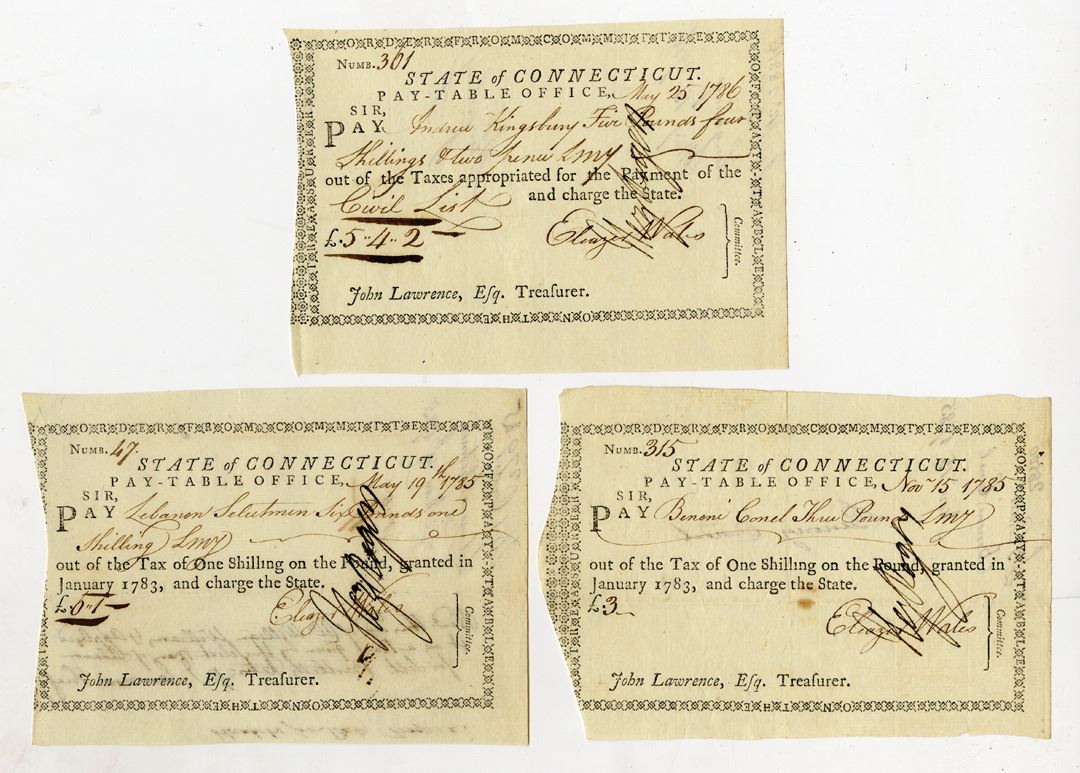 ORDER FROM COMMITTEE
OF PAY-TABLE
ON THE
TREASURER
NUMB. 361
STATE of CONNECTICUT.
PAY-TABLE OFFICE, May 25 1786
SIR,
PAY Andrew Kingsbury Five Pounds four
Shillings & two Pence LMY
out of the Taxes appropriated for the Payment of the
Civil List and charge the State.
£.5..4..2
Eleazer Wales
Committee.
John Lawrence, Eſq. Treaſurer.
ORDER FROM COMMITTEE
OF PAY-TABLE
ON THE
TREASURER
NUMB. 47
STATE of CONNECTICUT.
PAY-TABLE OFFICE, May 19th 1785
SIR,
PAY Lebanon Selectmen Six Pounds one
Shilling LMY
out of the Tax of One Shilling on the Pound, granted in
January 1783, and charge the State.
£.6..1
Eleazer Wales
Committee.
John Lawrence, Eſq. Treaſurer.
ORDER FROM COMMITTEE
OF PAY-TABLE
ON THE
TREASURER
NUMB. 315
STATE of CONNECTICUT.
PAY-TABLE OFFICE, Novr 15 1785
SIR,
PAY Benoni Conel Three Pound LMY
out of the Tax of One Shilling on the Pound, granted in
January 1783, and charge the State.
£.3
Eleazer Wales
Committee.
John Lawrence, Eſq. Treaſurer.